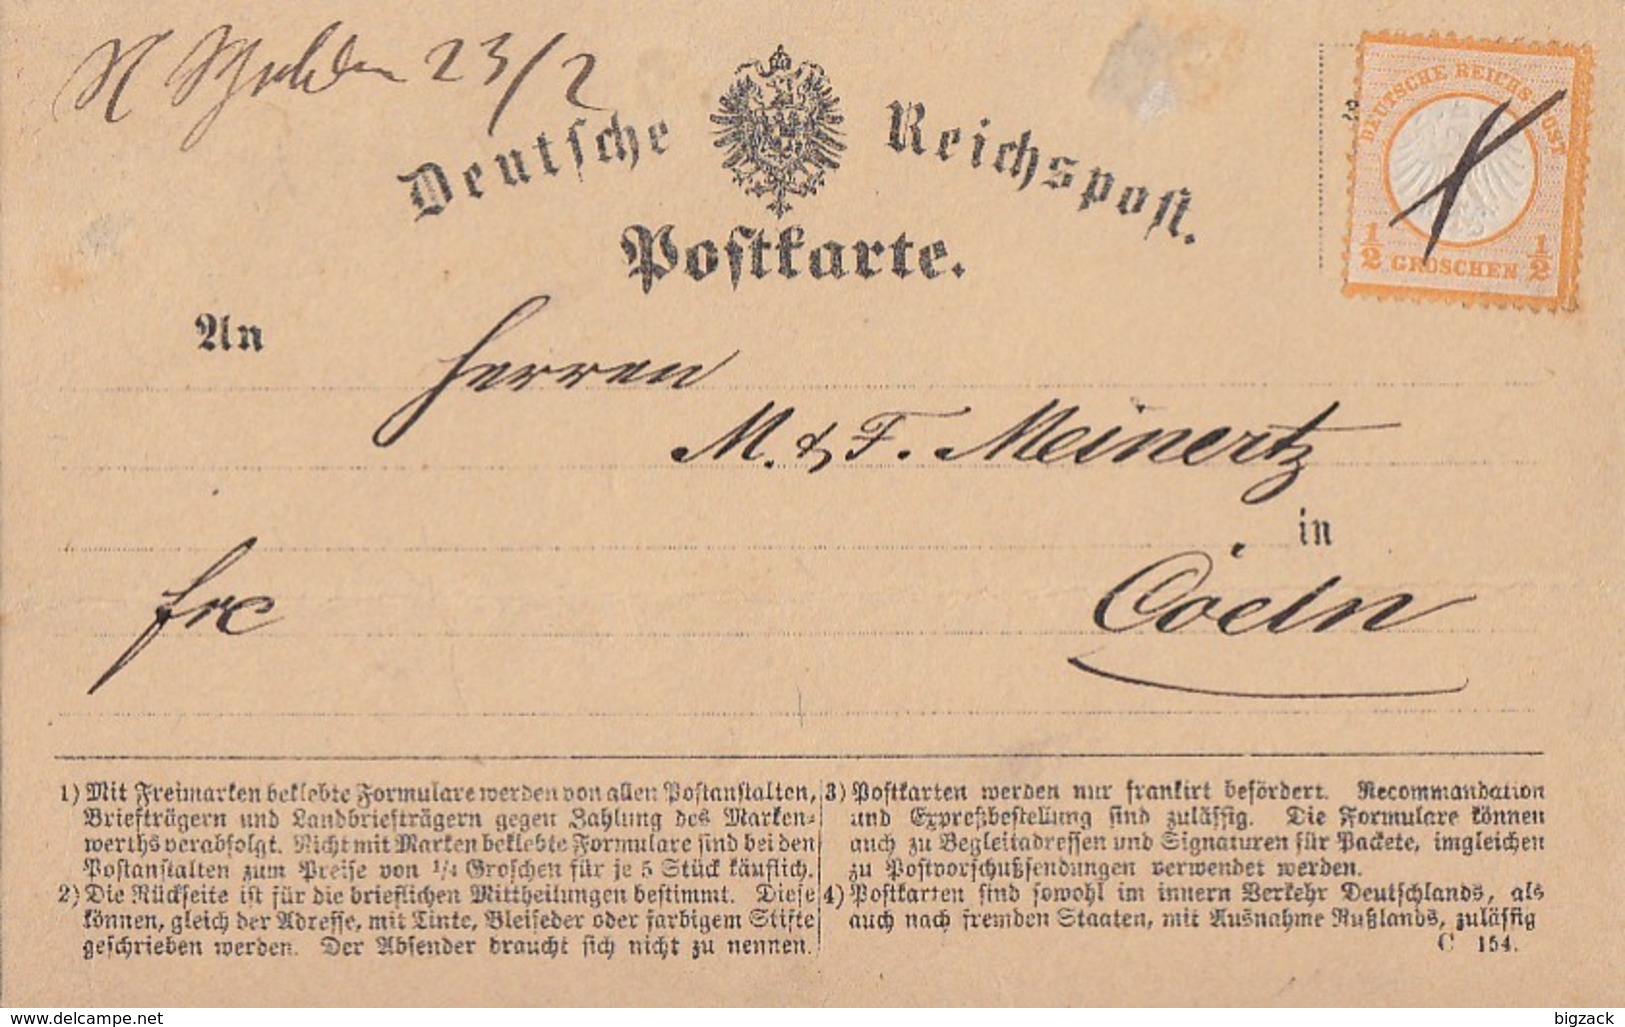 23/2
Deutsche Reichspost.
Postkarte.
DEUTSCHE REICHS-POST
1/2 GROSCHEN 1/2
An Herren
M. & F. Meinertz
in
frc Coeln
1) Mit Freimarken beklebte Formulare werden von allen Postanstalten,
Briefträgern und Landbriefträgern gegen Zahlung des Marken-
werths verabfolgt. Nicht mit Marken beklebte Formulare sind bei den
Postanstalten zum Preise von 1/4 Groschen für je 5 Stück käuflich.
2) Die Rückseite ist für die brieflichen Mittheilungen bestimmt. Diese
können, gleich der Adresse, mit Tinte, Bleifeder oder farbigem Stifte
geschrieben werden. Der Absender braucht sich nicht zu nennen.
3) Postkarten werden nur frankirt befördert. Recommandation
und Expreßbestellung sind zulässig. Die Formulare können
auch zu Begleitadressen und Signaturen für Packete, imgleichen
zu Postvorschußsendungen verwendet werden.
4) Postkarten sind sowohl im innern Verkehr Deutschlands, als
auch nach fremden Staaten, mit Ausnahme Rußlands, zulässig
C 154.
www.delcampe.net
bigzack